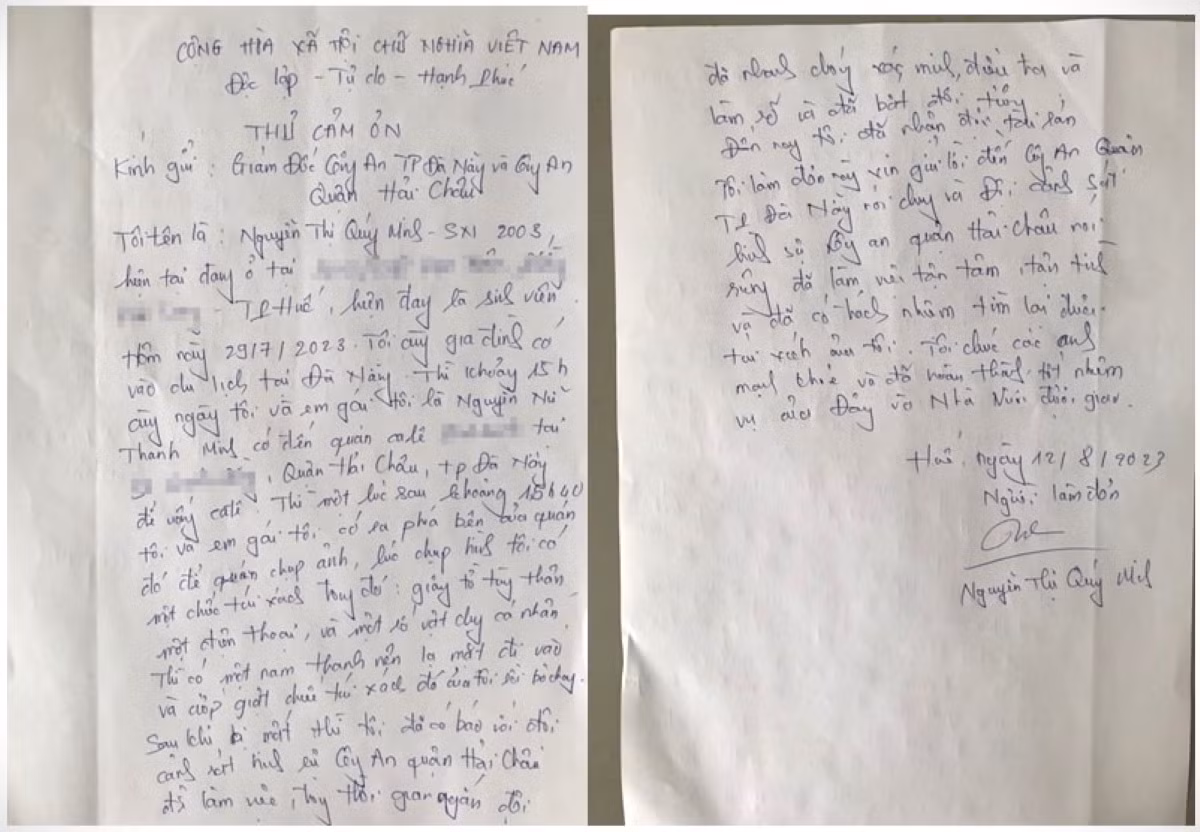 CỘNG HÒA XÃ HỘI CHỦ NGHĨA VIỆT NAM
Độc lập - Tự do - Hạnh Phúc
THƯ CẢM ƠN
Kính gửi : Giám Đốc Công An TP Đà Nẵng và Công An
Quận Hải Châu
Tôi tên là : Nguyễn Thị Quý Minh - SN 2003,
hiện tại đang ở tại
- TP Huế, hiện đang là sinh viên.
Hôm ngày 29/7/2023. Tôi cùng gia đình có
vào du lịch tại Đà Nẵng. Thì khoảng 15h
cùng ngày tôi và em gái tôi là Nguyễn Nữ
Thanh Minh có đến quán cafê tại
, Quận Hải Châu, tp Đà Nẵng
để uống cafê. Thì một lúc sau khoảng 15h40
tôi và em gái tôi có ra phía bên của quán
đó để chụp ảnh, lúc chụp hình tôi có
một chiếc túi xách trong đó : giấy tờ tùy thân
một điện thoại, và một số vật dụng cá nhân.
Thì có một nam thanh niên lạ mặt đi vào
và cướp giật chiếc túi xách đó của tôi rồi bỏ chạy.
Sau khi bị mất thì tôi đã có báo với đội
cảnh sát hình sự Công An quận Hải Châu
để làm việc, trong thời gian ngắn đội
đã nhanh chóng xác minh, điều tra và
làm rõ và đã bắt đối tượng
Đến nay tôi đã nhận được tài sản
Tôi làm đơn này xin gửi lời đến Công An Quận
TP Đà Nẵng nói chung và Đội cảnh sát
hình sự Công an quận Hải Châu nói
riêng đã làm việc tận tâm, tận tình
và đã có trách nhiệm tìm lại được
túi xách của tôi. Tôi chúc các anh
mạnh khỏe và đã hoàn thành tốt nhiệm
vụ của Đảng và Nhà Nước được giao.
Huế, ngày 12/8/2023
Người làm đơn
Nguyễn Thị Quý Minh